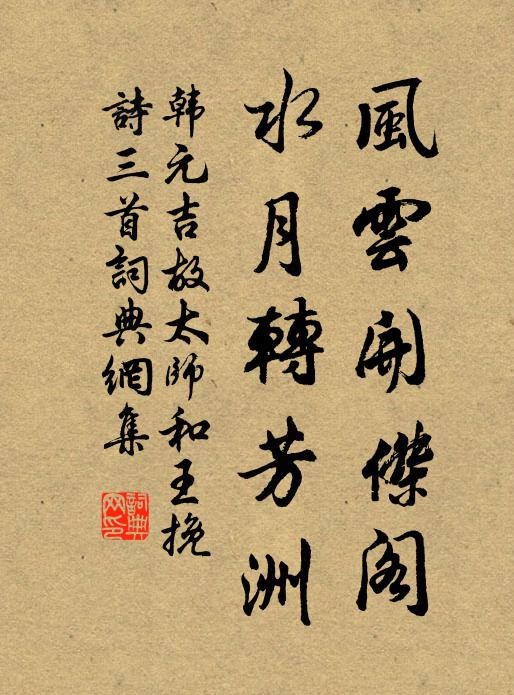 風雲開傑閣
水月轉芳洲
韩元吉故太師和王挽
詩三首詞典網集
詞典網印